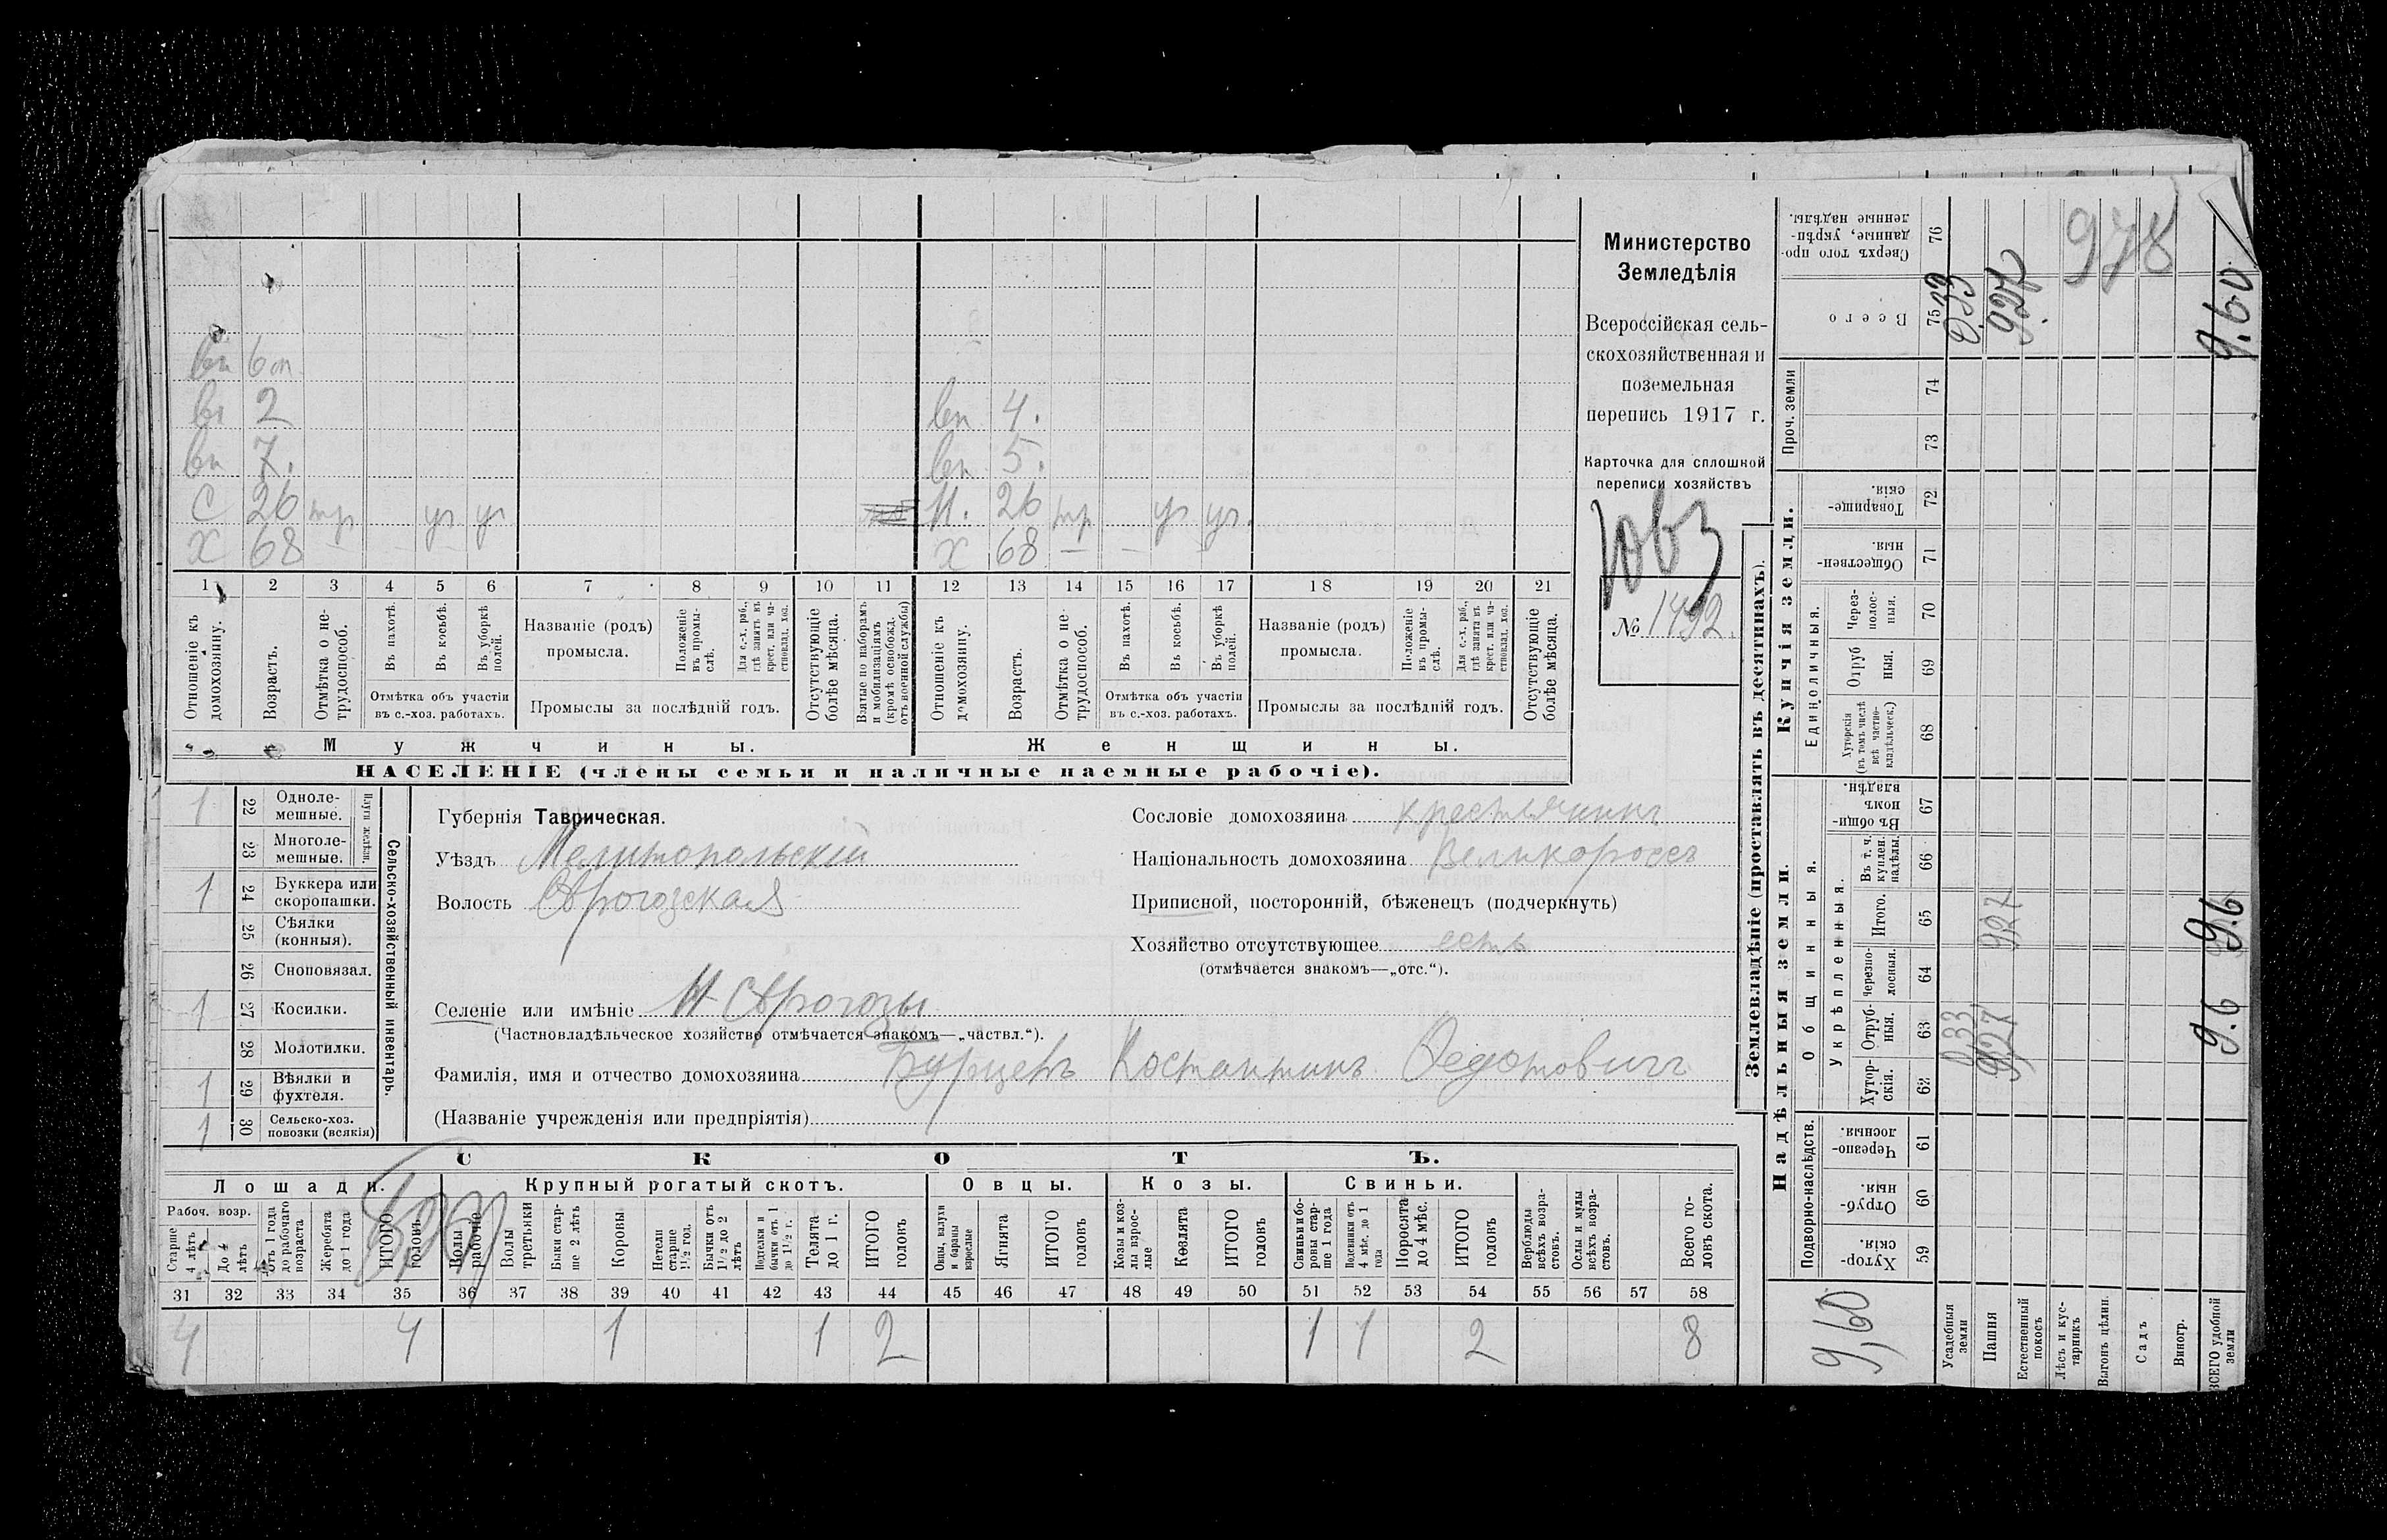 вн 6м
вн 2
вн 4.
вн 7.
вн 5.
С 26 тр ут ут
Н. 26 тр ут ут.
Х 68 – – –
Х 68 – –
1 2 3 4 5 6 7 8 9 10 11 12 13 14 15 16 17 18 19 20 21
Отношеніе къ домохозяину.
Возрастъ.
Отмѣтка о нетрудоспособ.
Въ пахотѣ.
Въ косьбѣ.
Въ уборкѣ полей.
Отмѣтка объ участіи въ с.-хоз. работахъ.
Названіе (родъ) промысла.
Положеніе въ промыслѣ.
Для с.-х. раб., гдѣ занятъ въ крест. или частновлад. хоз.
Промыслы за послѣдній годъ.
Отсутствующіе болѣе мѣсяца.
Взятые по наборамъ и мобилизаціямъ (кромѣ освобожд. отъ военной службы)
Отношеніе къ домохозяину.
Возрастъ.
Отмѣтка о нетрудоспособ.
Въ пахотѣ.
Въ косьбѣ.
Въ уборкѣ полей.
Отмѣтка объ участіи въ с.-хоз. работахъ.
Названіе (родъ) промысла.
Положеніе въ промыслѣ.
Для с.-х. раб., гдѣ занята въ крест. или частновлад. хоз.
Промыслы за послѣдній годъ.
Отсутствующіе болѣе мѣсяца.
Мужчины.
Женщины.
НАСЕЛЕНІЕ (члены семьи и наличные наемные рабочіе).
Министерство
Земледѣлія
Всероссійская сель-
скохозяйственная и
поземельная
перепись 1917 г.
Карточка для сплошной
переписи хозяйствъ
№ 1492.
1 22 Одноле-мешные.
23 Многоле-мешные.
Плуги желѣзн.
1 24 Буккера или скоропашки.
25 Сѣялки (конныя).
26 Сноповязал.
1 27 Косилки.
28 Молотилки.
1 29 Вѣялки и фухтеля.
1 30 Сельско-хоз. повозки (всякія)
Сельско-хозяйственный инвентарь.
Губернія Таврическая.
Уѣздъ Мелитопольскій
Волость Сѣрогозская
Селеніе или имѣніе Н Сѣрогозы
(Частновладѣльческое хозяйство отмѣчается знакомъ—„частвл.“).
Фамилія, имя и отчество домохозяина Бурцевъ Костантинъ Федотовичъ
(Названіе учрежденія или предпріятія)
Сословіе домохозяина крестьянинъ
Національность домохозяина Великороссъ
Приписной, посторонній, бѣженецъ (подчеркнуть)
Хозяйство отсутствующее есть
(отмѣчается знакомъ—„отс.“).
СКОТЪ.
Лошади.
Крупный рогатый скотъ.
Овцы.
Козы.
Свиньи.
Рабоч. возр.
Старше 4 лѣтъ
До 4 лѣтъ
Отъ 1 года до рабочаго возраста
Жеребята до 1 года
ИТОГО головъ
Волы рабочіе
Волы третьяки
Быки старше 2 лѣтъ
Коровы
Нетели старше 1½ год.
Бычки отъ 1½ до 2 лѣтъ
Подтелки и бычки отъ 1 до 1½ г.
Телята до 1 г.
ИТОГО головъ
Овцы, валухи и бараны взрослые
Ягнята
ИТОГО головъ
Козы и козлы взрослые
Козлята
ИТОГО головъ
Свиньи и боровы старше 1 года
Подсвинки отъ 4 мѣс. до 1 года
Поросята до 4 мѣс.
ИТОГО головъ
Верблюды всѣхъ возрастовъ.
Ослы и мулы всѣхъ возрастовъ.
Всего головъ скота.
31 32 33 34 35 36 37 38 39 40 41 42 43 44 45 46 47 48 49 50 51 52 53 54 55 56 57 58
4 4 1 1 2 1 1 2 8
Землевладѣніе (проставлять въ десятинахъ).
Надѣльныя земли.
Купчія земли.
Проч. земли
Сверхъ того проданные, укрѣпленные надѣлы. 76
Всего 75
74
73
Товарищескія. 72
Общественныя. 71
Единоличныя.
Черезполосныя. 70
Отрубныя. 69
Хуторскія (въ томъ числѣ всѣ частновладѣльческ.) 68
Общинныя.
Въ общинномъ владѣн. 67
Укрѣпленныя.
Въ т. ч. куплен. надѣлы. 66
Итого. 65
Черезполосныя. 64
Отрубныя. 63
Хуторскія. 62
Подворно-наслѣдств.
Черезполосныя. 61
Отрубныя. 60
Хуторскія. 59
9,60
Усадебныя земли 0,33 0.33
Пашня 9,27 927 9.27
Естественный покосъ
Лѣсъ и кустарникъ
Выгонъ цѣлин.
Садъ
Виногр.
ВСЕГО удобной земли 9.6 9.6 9.60
978